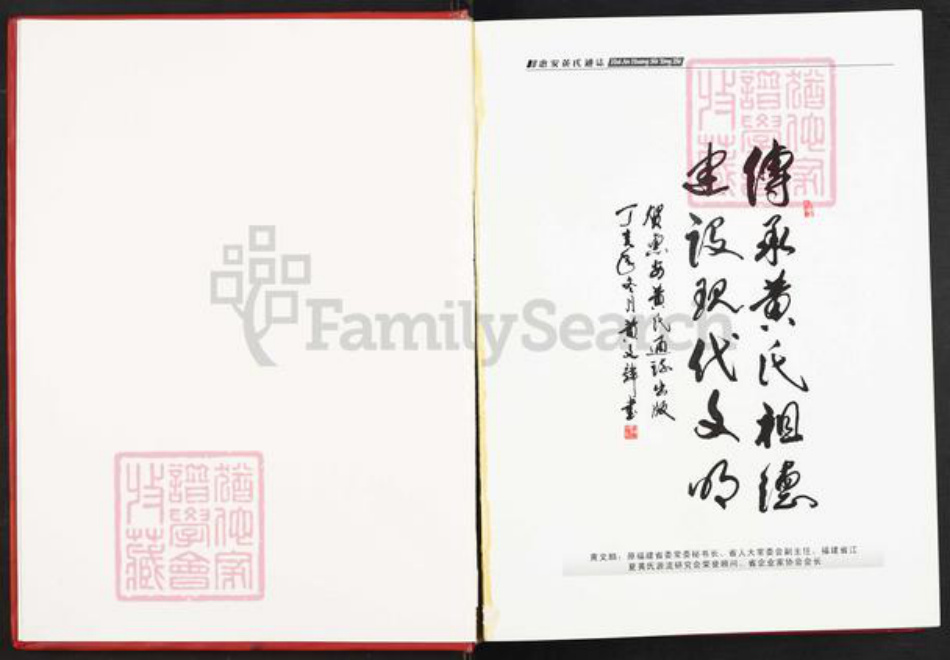 惠安黄氏通誌 Hui An Huang Shi Tong Zhi
傳承黄氏祖德
建設現代文明
賀惠安黄氏通誌出版
丁亥年冬月黄文麟書
黄文麟：原福建省委常委秘书长、省人大常委会副主任、福建省江
夏黄氏源流研究会荣誉顾问、省企业家协会会长
猶他家
譜學會
收藏
猶他家
譜學會
收藏
FamilySearch